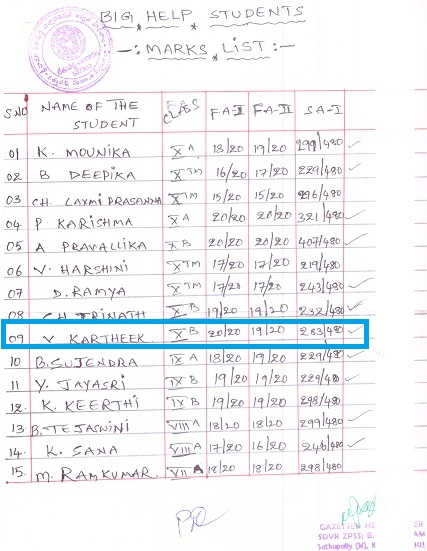 BIG HELP STUDENTS
-:MARKS LIST:-
S.NO NAME OF THE STUDENT CLASS FA-II FA-II SA-I
01 K. MOUNIKA X A 18/20 19/20 299/480
02 B DEEPIKA X TM 16/20 17/20 229/480
03 CH. LAXMI PRASANNA X TM 15/20 15/20 296/480
04 P KARISHMA X A 20/20 20/20 321/480
05 A PRAVALLIKA X B 20/20 20/20 407/480
06 V. HARSHINI X TM 17/20 17/20 219/480
07 D. RAMYA X TM 17/20 17/20 243/480
08 CH TRINATH X B 19/20 19/20 232/480
09 V KARTHEEK X B 20/20 19/20 283/480
10 B. SUJENDRA IX A 18/20 19/20 229/480
11 Y. JAYASRI IX B 19/20 19/20 229/480
12. K. KEERTHI IX B 19/20 19/20 298/480
13 B. TEJASWINI VIII A 18/20 18/20 299/480
14. K. SANA VIII A 17/20 16/20 246/480
15. M. RAMKUMAR VII A 18/20 18/20 298/480
GAZETTED HE
SDVR ZPSS; B.
Sathupally (M),